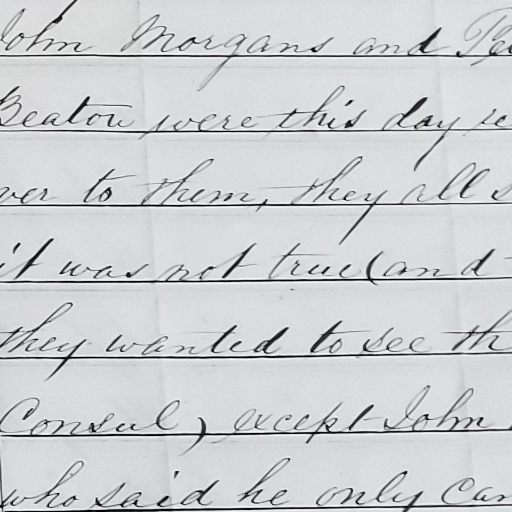 John Morgans and Pe
Beaton were this day re
ver to them, they all s
it was not true (and
they wanted to see th
Consul) except John
who said he only cam